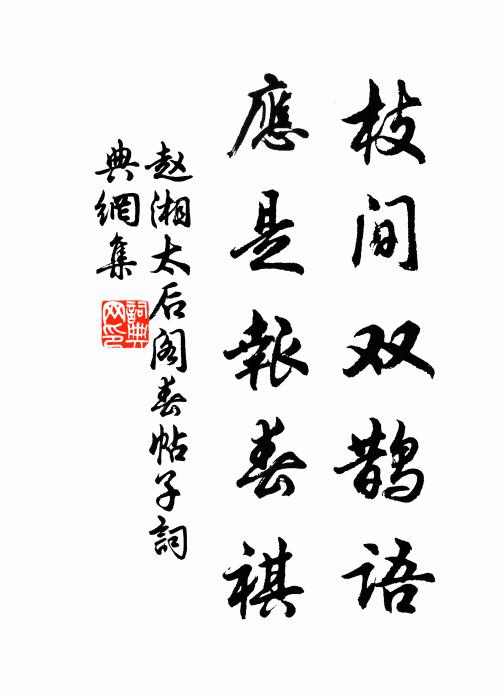 枝间双鹊语
應是報春祺
赵湘太后阁春帖子詞
典網集
詞典
网印